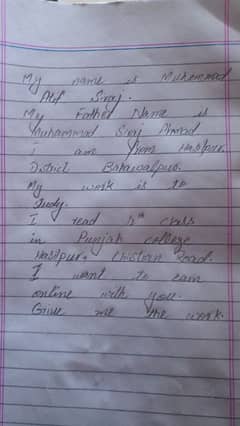 My name is Muhammad
Atif Siraj.
My Father Name is
Muhammad Siraj Ahmad
I am from Hasilpur
District Bahawalpur.
My work is to
study.
I read 11th class
in Punjab college
Hasilpur, Chistian Road.
I want to earn
online with you.
Give me the work.